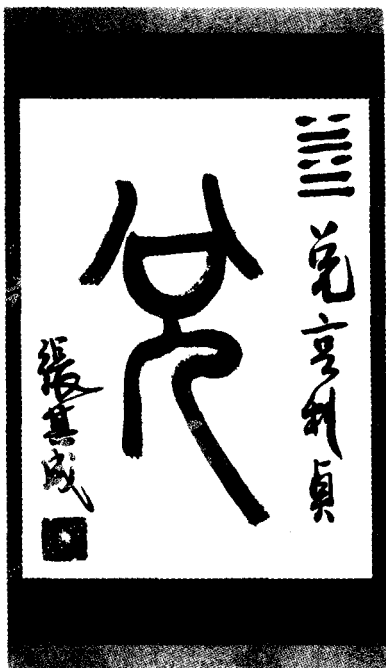 兑亨利贞
兑
張其成